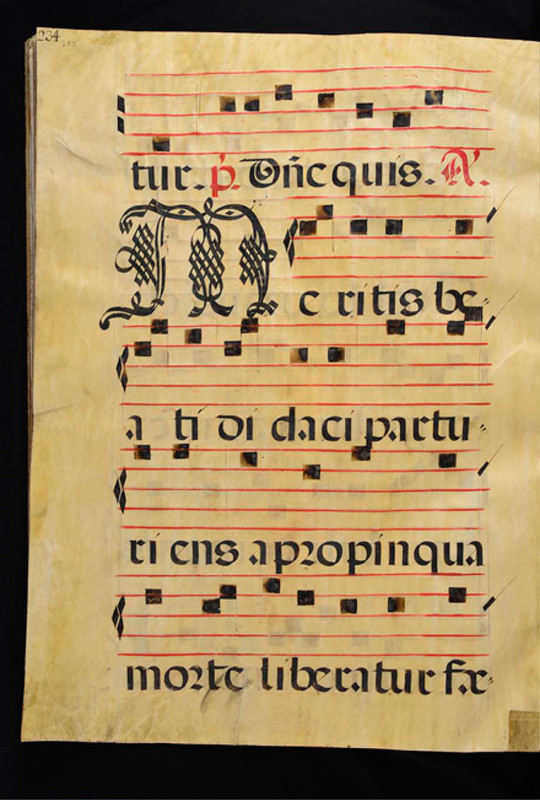 234
tur. p. Dñe quis. A.
Meritis be
ati didaci partu
riens apropinqua
morte liberatur fæ